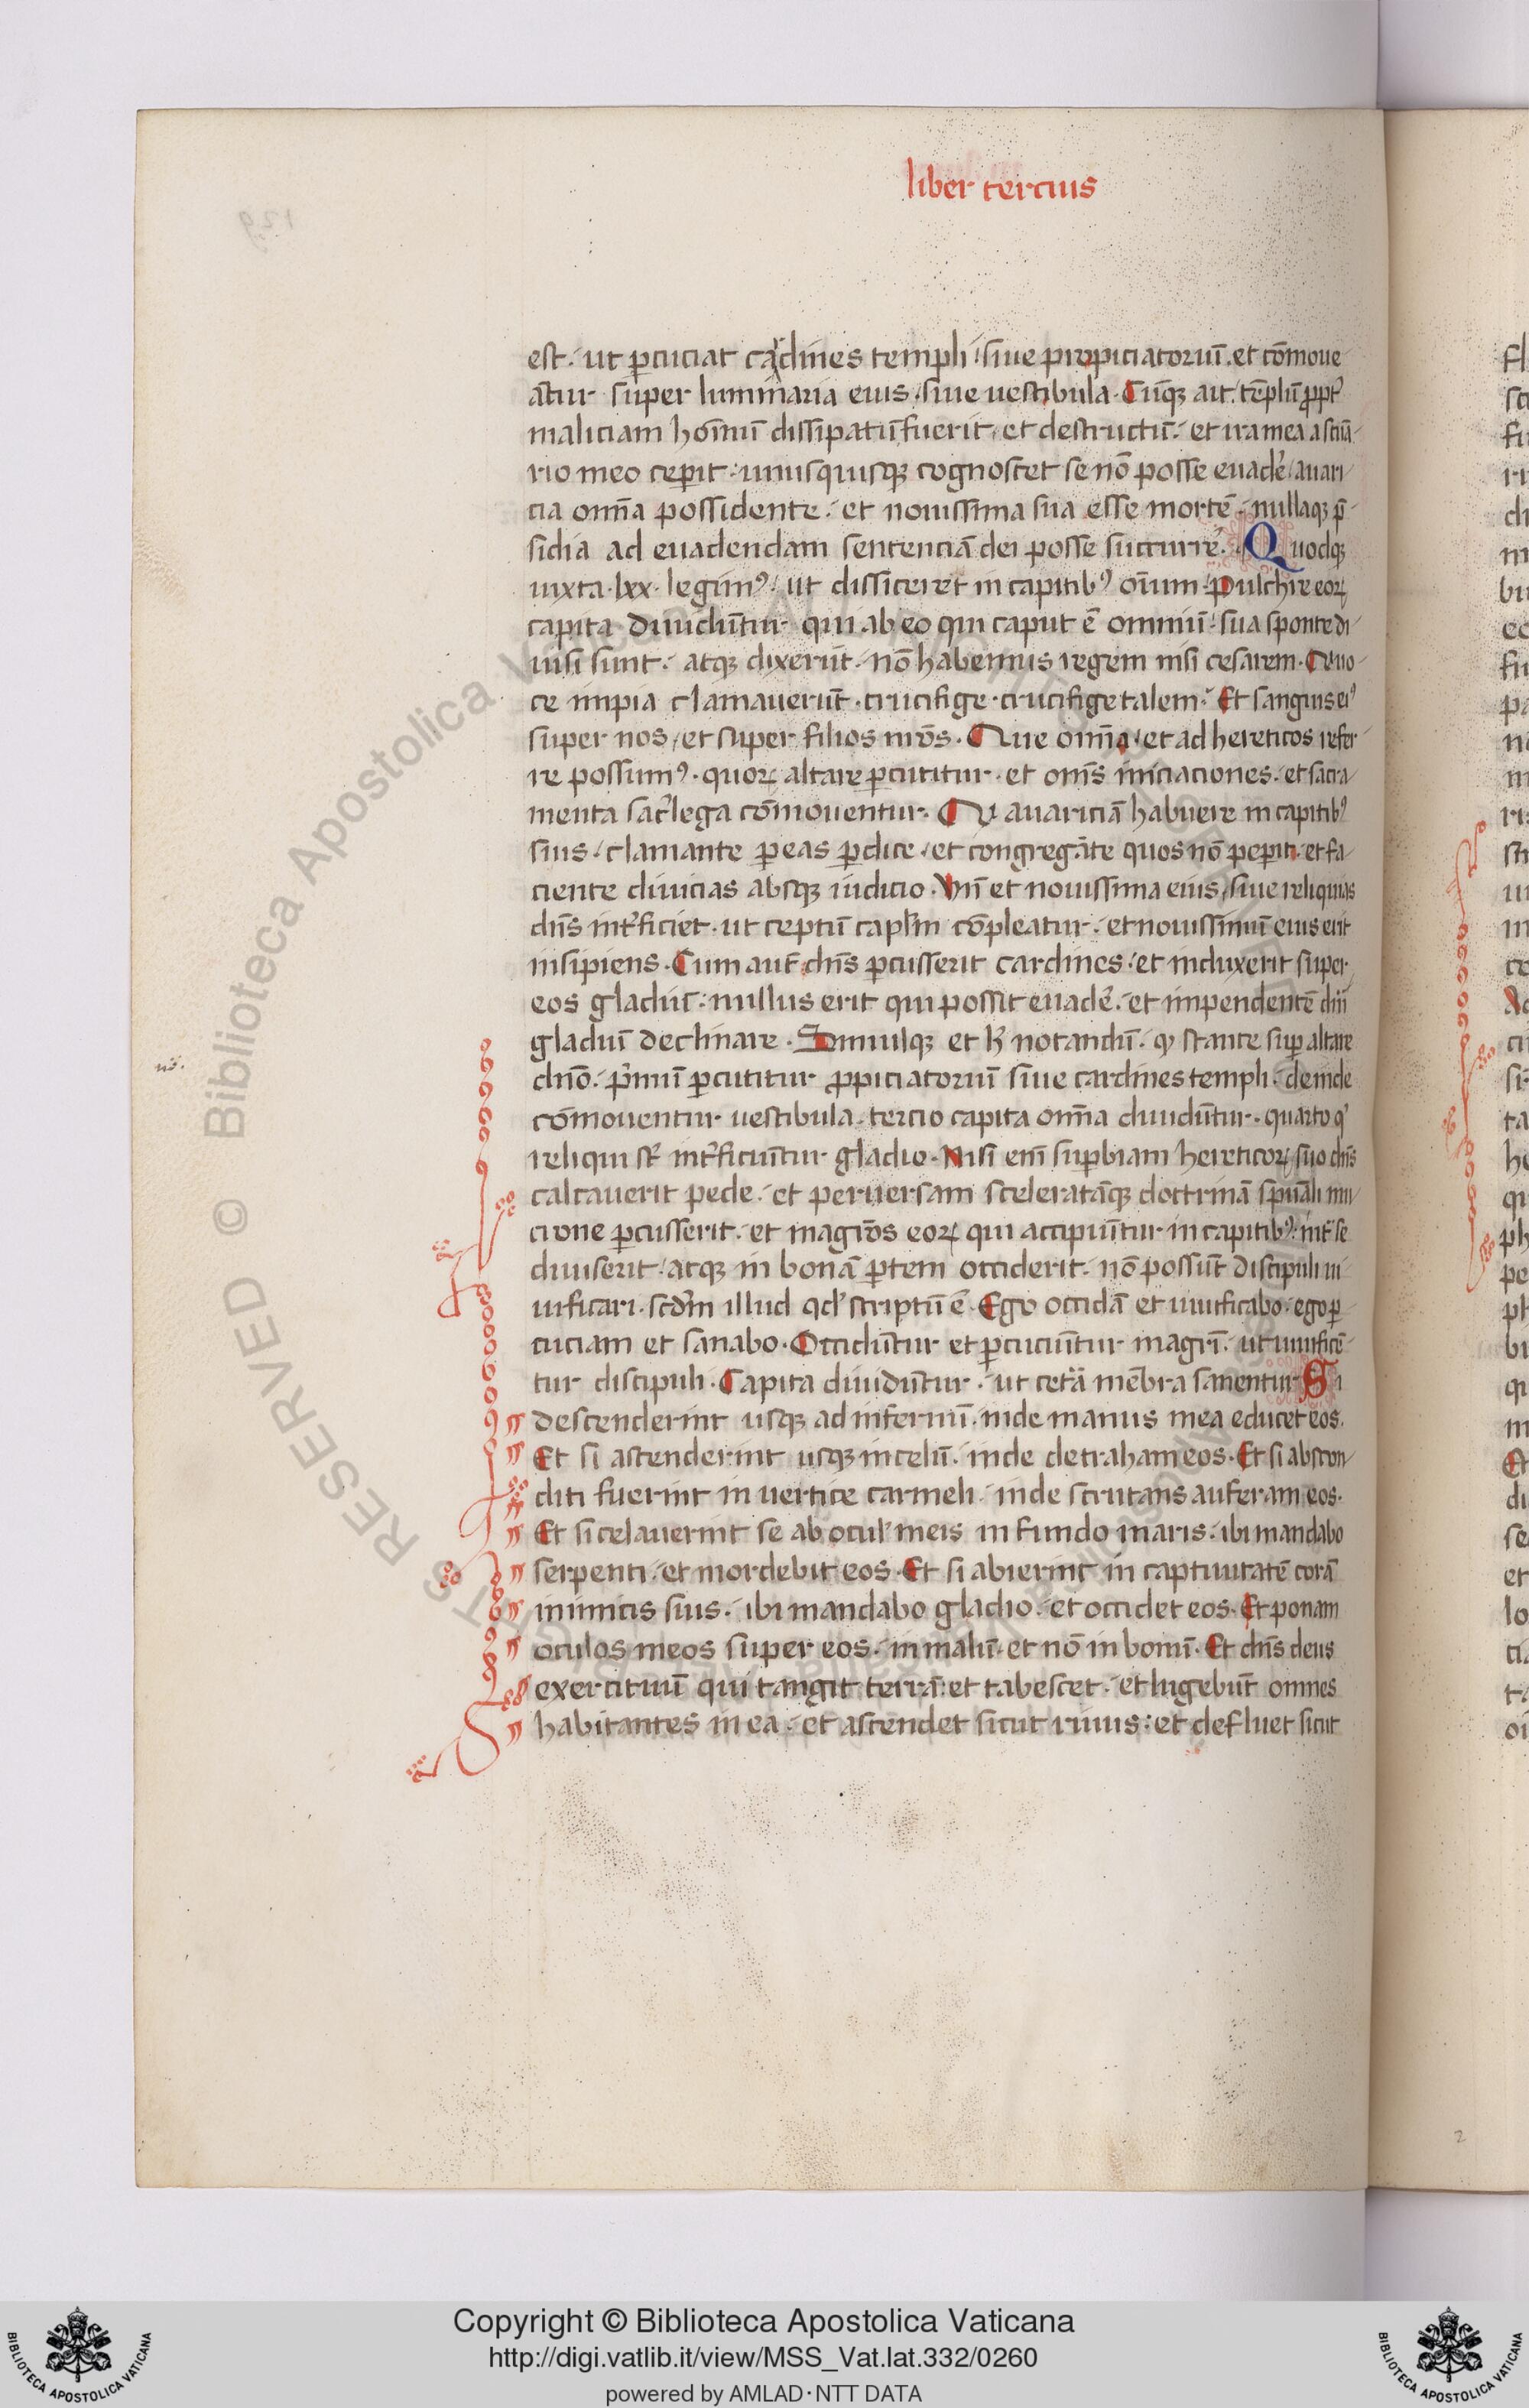 liber tercius
est. ut ꝑcuciat cardines templi. siue propiciatoriū. et cōmoue
ant̄ur super luminaria eius. siue uestibula. Cūqꝫ ait. tēplū ꝓpt̓
maliciam hoīmū dissipatū fuerit. et destructū. et ira mea a sc̄ua
rio meo ceperit. unusquisqꝫ cognoscet se nō posse euade̓. auari
cia om̄a possidente. et nouissima sua esse mortē. nullaqꝫ p̄
sidia ad euadendam sentenciā dei posse succurre̓. Quodqꝫ
iuxta .lxx. legimꝰ. ut dissiceret in capitibꝰ oīum. Pulchre eoꝝ
capita diuidūtur qui ab eo qui caput ē omniū. sua sponte di
uisi sunt. atqꝫ dixerūt. nō habemus regem nisi cesarem. Quo
ce impia clamauerūt. crucifige. crucifige talem. Et sanguis eiꝰ
super nos. et super filios nr̄os. Que om̄ia. et ad hereticos refer
re possumꝰ. quoꝝ altare ꝑcutitur. et om̄s iniciaciones. et sacra
menta sac̓lega cōmouentur. Qui auariciā habuere in capitibꝰ
suis. clamante ꝑ eas ꝑdice. et congregāte quos nō peperit. et fa
ciente diuicias absqꝫ iudicio. Vn̄ et nouissima eius. siue reliquias
dn̄s int̓ficiet. ut ceptū capl̓m cōpleatur. et nouissimū eius erit
insipiens. Cum aut̄ dn̄s ꝑcusserit cardines. et induxerit super
eos gladiū. nullus erit qui possit euade̓. et impendentē dn̄i
gladiū declinare. Simulqꝫ et h̓ notandū. ꝙ stante suꝑ altare
dn̄o. p̓mū ꝑcutitur ꝓpiciatoriū siue cardines templi. deinde
cōmouentur uestibula. tercio capita om̄ia diuidūtur. quarto q̓
reliqui st̄ int̓ficiūtur gladio. Nisi eni̅ suꝑbiam hereticoꝝ suo dn̄s
calcauerit pede. et peruersam sceleratāqꝫ doctrinā spūali mu
crone ꝑcusserit. et magr̄os eoꝝ qui accipiūtur in capitibꝰ. int̓ se
diuiserit. atqꝫ in bonā ꝑtem occiderit. nō possūt discipuli ui
uificari. scd̄m illud qd̓ scriptū ē. Ego occidā et uiuificabo. ego ꝑ
cuciam et sanabo. Occidūtur et ꝑcuciūtur magr̄i. ut uiuificē
tur discipuli. Capita diuidūtur. ut cet̓a mēbra sanentur Si
descenderint usqꝫ ad infernū. inde manus mea educet eos.
Et si ascenderint usqꝫ in celū. inde detraham eos. Et si abscon
diti fuerint in uertice carmeli. inde scrutans auferam eos.
Et si celauerint se ab ocul̓ meis in fundo maris. ibi mandabo
serpenti. et mordebit eos. Et si abierint in captiuitatē corā
inimicis suis. ibi mandabo gladio. et occidet eos. Et ponam
oculos meos super eos. in malū. et nō in bonū. Et dn̄s deus
exercituū qui tangit terrā. et tabescet. et lugebūt omnes
habitantes in ea. et ascendet sicut riuus. et defluet sicut
Copyright © Biblioteca Apostolica Vaticana
http://digi.vatlib.it/view/MSS_Vat.lat.332/0260
powered by AMLAD·NTT DATA